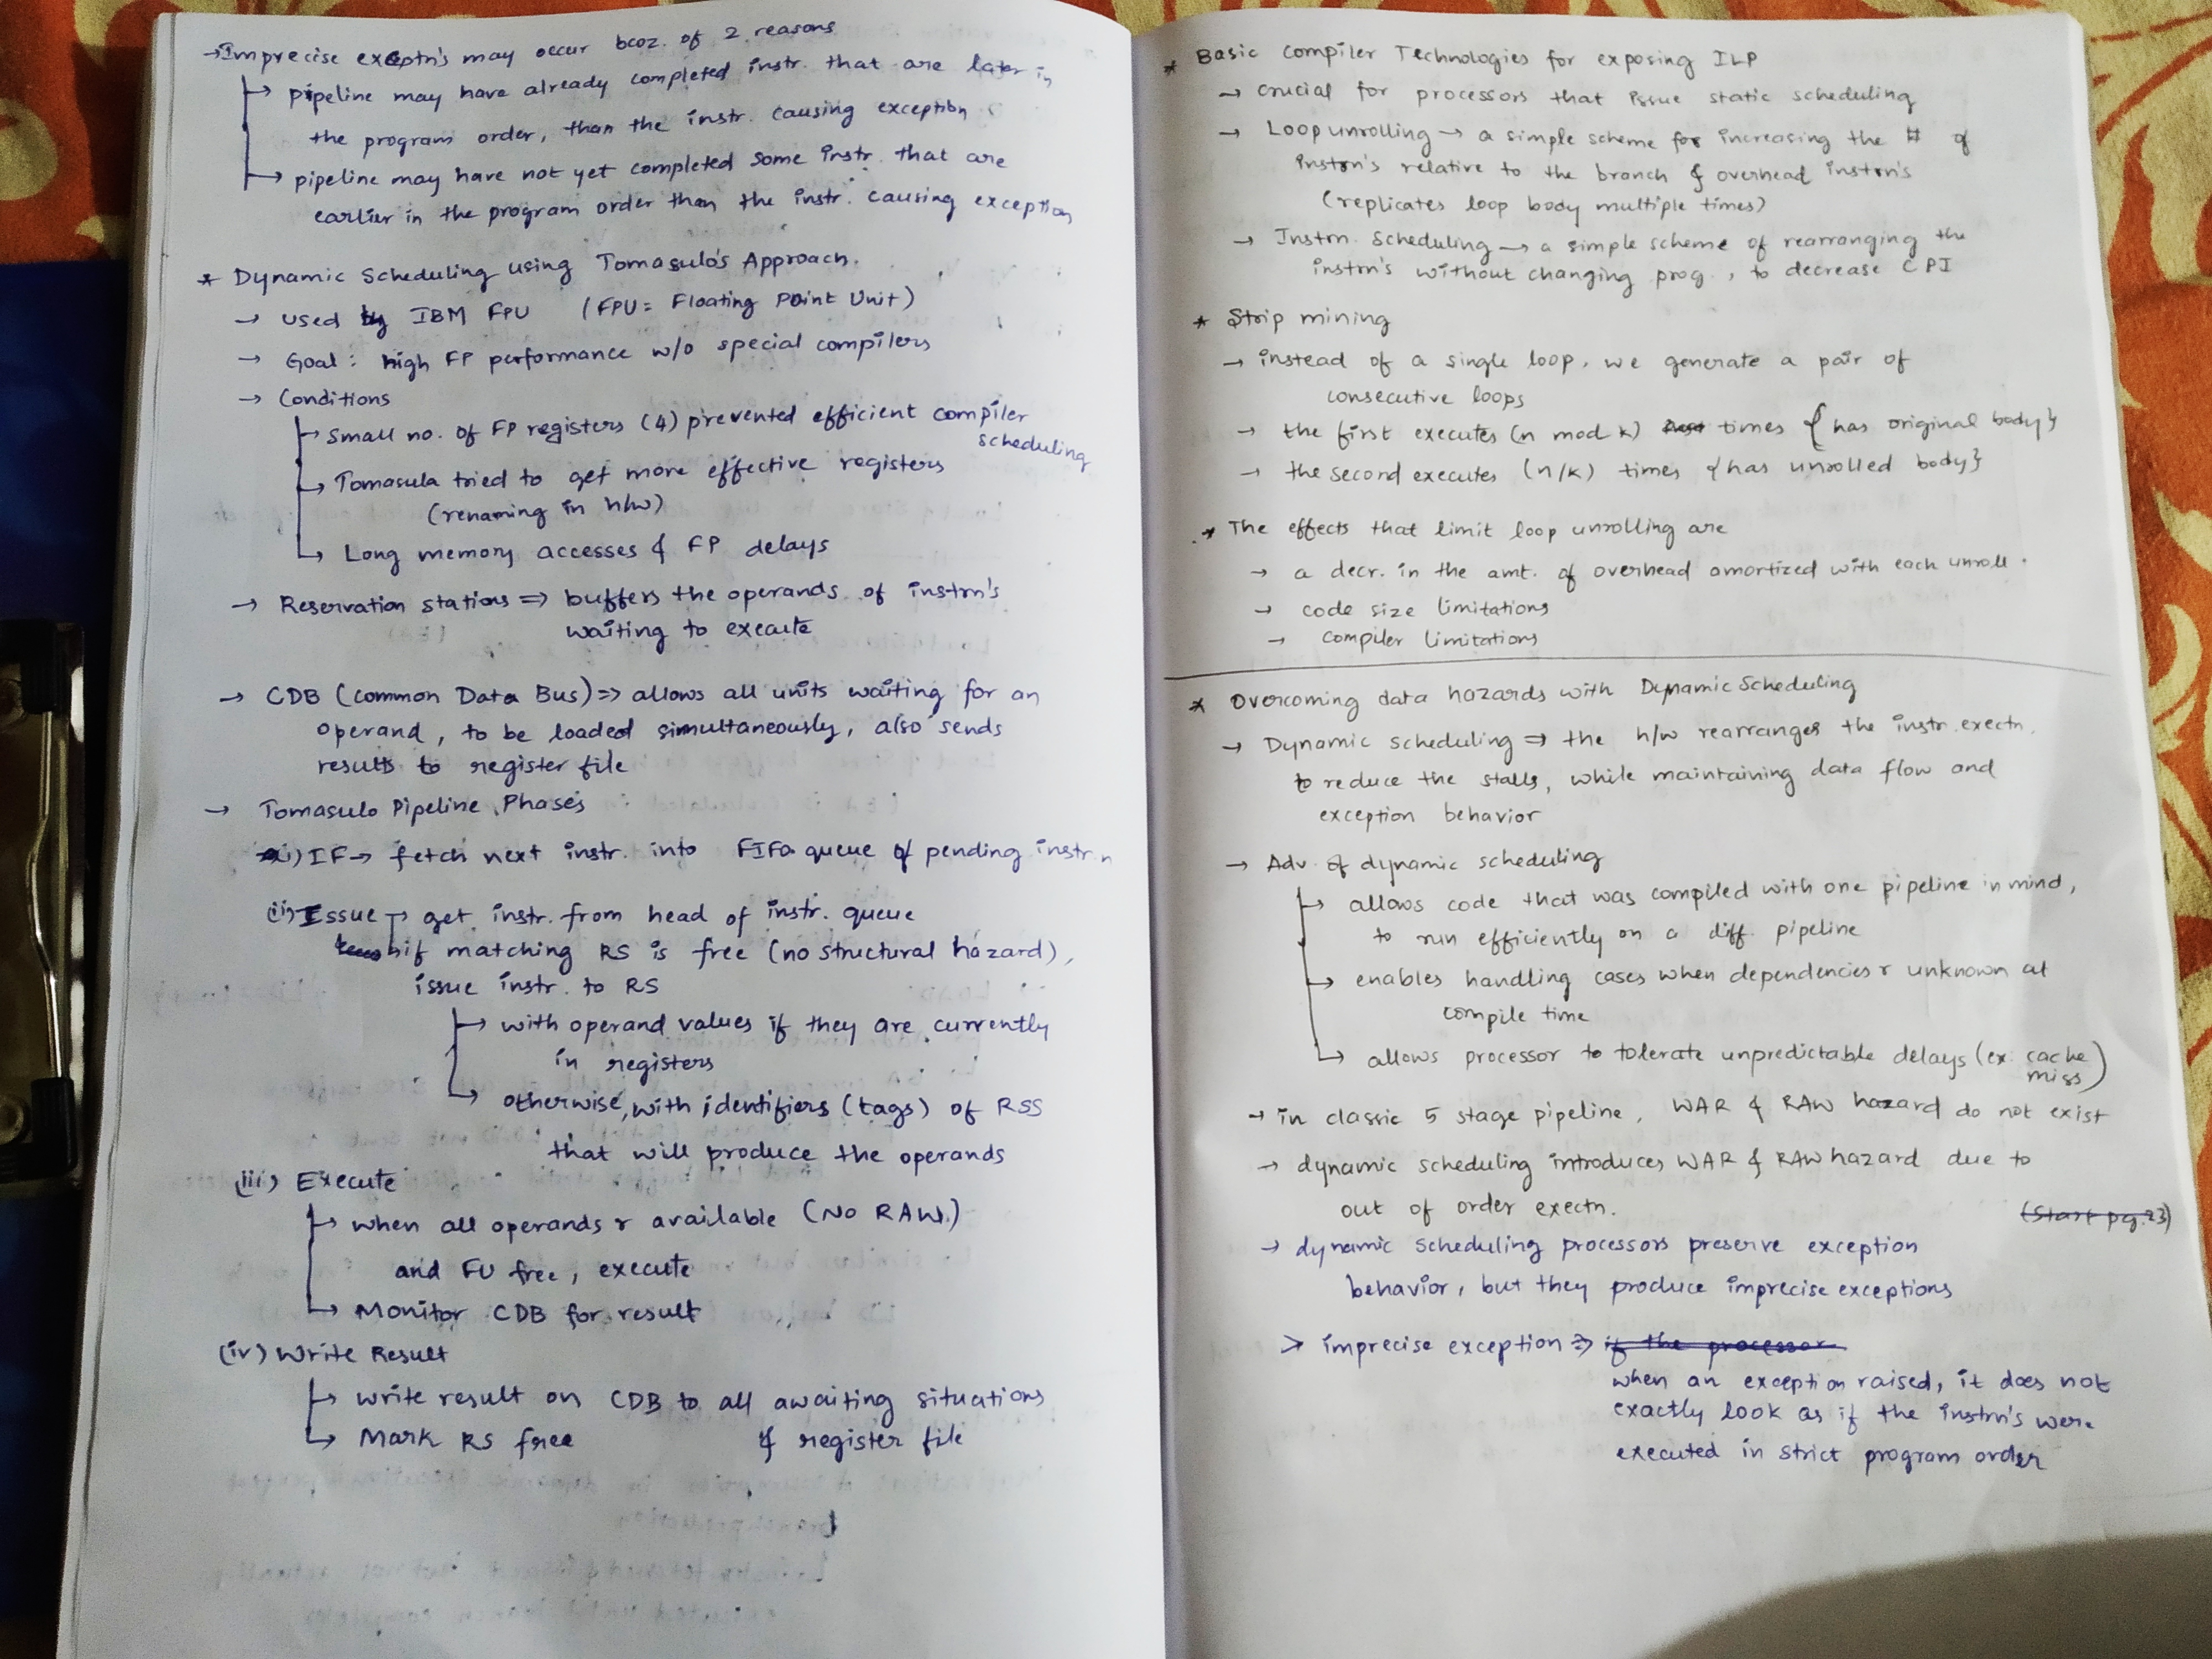 →Imprecise exceptn's may occur bcoz. of 2 reasons
→ pipeline may have already completed instr. that are later in
the program order, than the instr. causing exception
→ pipeline may have not yet completed some instr. that are
earlier in the program order than the instr. causing exception
* Dynamic Scheduling using Tomasulo's Approach.
→ used by IBM FPU (FPU = Floating Point Unit)
→ Goal : high FP performance w/o special compilers
→ Conditions
→ Small no. of FP registers (4) prevented efficient compiler
scheduling
→ Tomasula tried to get more effective registers
(renaming in h/w)
→ Long memory accesses & FP delays
→ Reservation stations => buffers the operands of instrn's
waiting to execute
→ CDB (Common Data Bus) => allows all units waiting for an
operand, to be loaded simultaneously, also sends
results to register file
→ Tomasulo Pipeline Phases
i) IF → fetch next instr. into FIFO queue of pending instrn
(ii) Issue → get instr. from head of instr. queue
if matching RS is free (no structural hazard),
issue instr. to RS
→ with operand values if they are currently
in registers
→ otherwise, with identifiers (tags) of RSS
that will produce the operands
(iii) Execute
→ when all operands r available (No RAW)
and FU free, execute
→ Monitor CDB for result
(iv) Write Result
→ write result on CDB to all awaiting situations
→ Mark RS free & register file
* Basic Compiler Technologies for exposing ILP
→ crucial for processors that issue static scheduling
→ Loop unrolling → a simple scheme for increasing the # of
instrn's relative to the branch & overhead instrn's
(replicates loop body multiple times)
→ Instrn. Scheduling → a simple scheme of rearranging the
instrn's without changing prog., to decrease CPI
* Strip mining
→ instead of a single loop, we generate a pair of
consecutive loops
→ the first executes (n mod k) times {has original body}
→ the second executes (n/k) times {has unrolled body}
* The effects that limit loop unrolling are
→ a decr. in the amt. of overhead amortized with each unroll.
→ code size limitations
→ compiler limitations
* Overcoming data hazards with Dynamic Scheduling
→ Dynamic scheduling => the h/w rearranges the instr. exectn.
to reduce the stalls, while maintaining data flow and
exception behavior
→ Adv. of dynamic scheduling
→ allows code that was compiled with one pipeline in mind,
to run efficiently on a diff. pipeline
→ enables handling cases when dependencies r unknown at
compile time
→ allows processor to tolerate unpredictable delays (ex. cache
miss)
→ in classic 5 stage pipeline, WAR & RAW hazard do not exist
→ dynamic scheduling introduces WAR & RAW hazard due to
out of order exectn.
(Start pg.23)
→ dynamic scheduling processors preserve exception
behavior, but they produce imprecise exceptions
> imprecise exception => if the processor
when an exception raised, it does not
exactly look as if the instrn's were
executed in strict program order